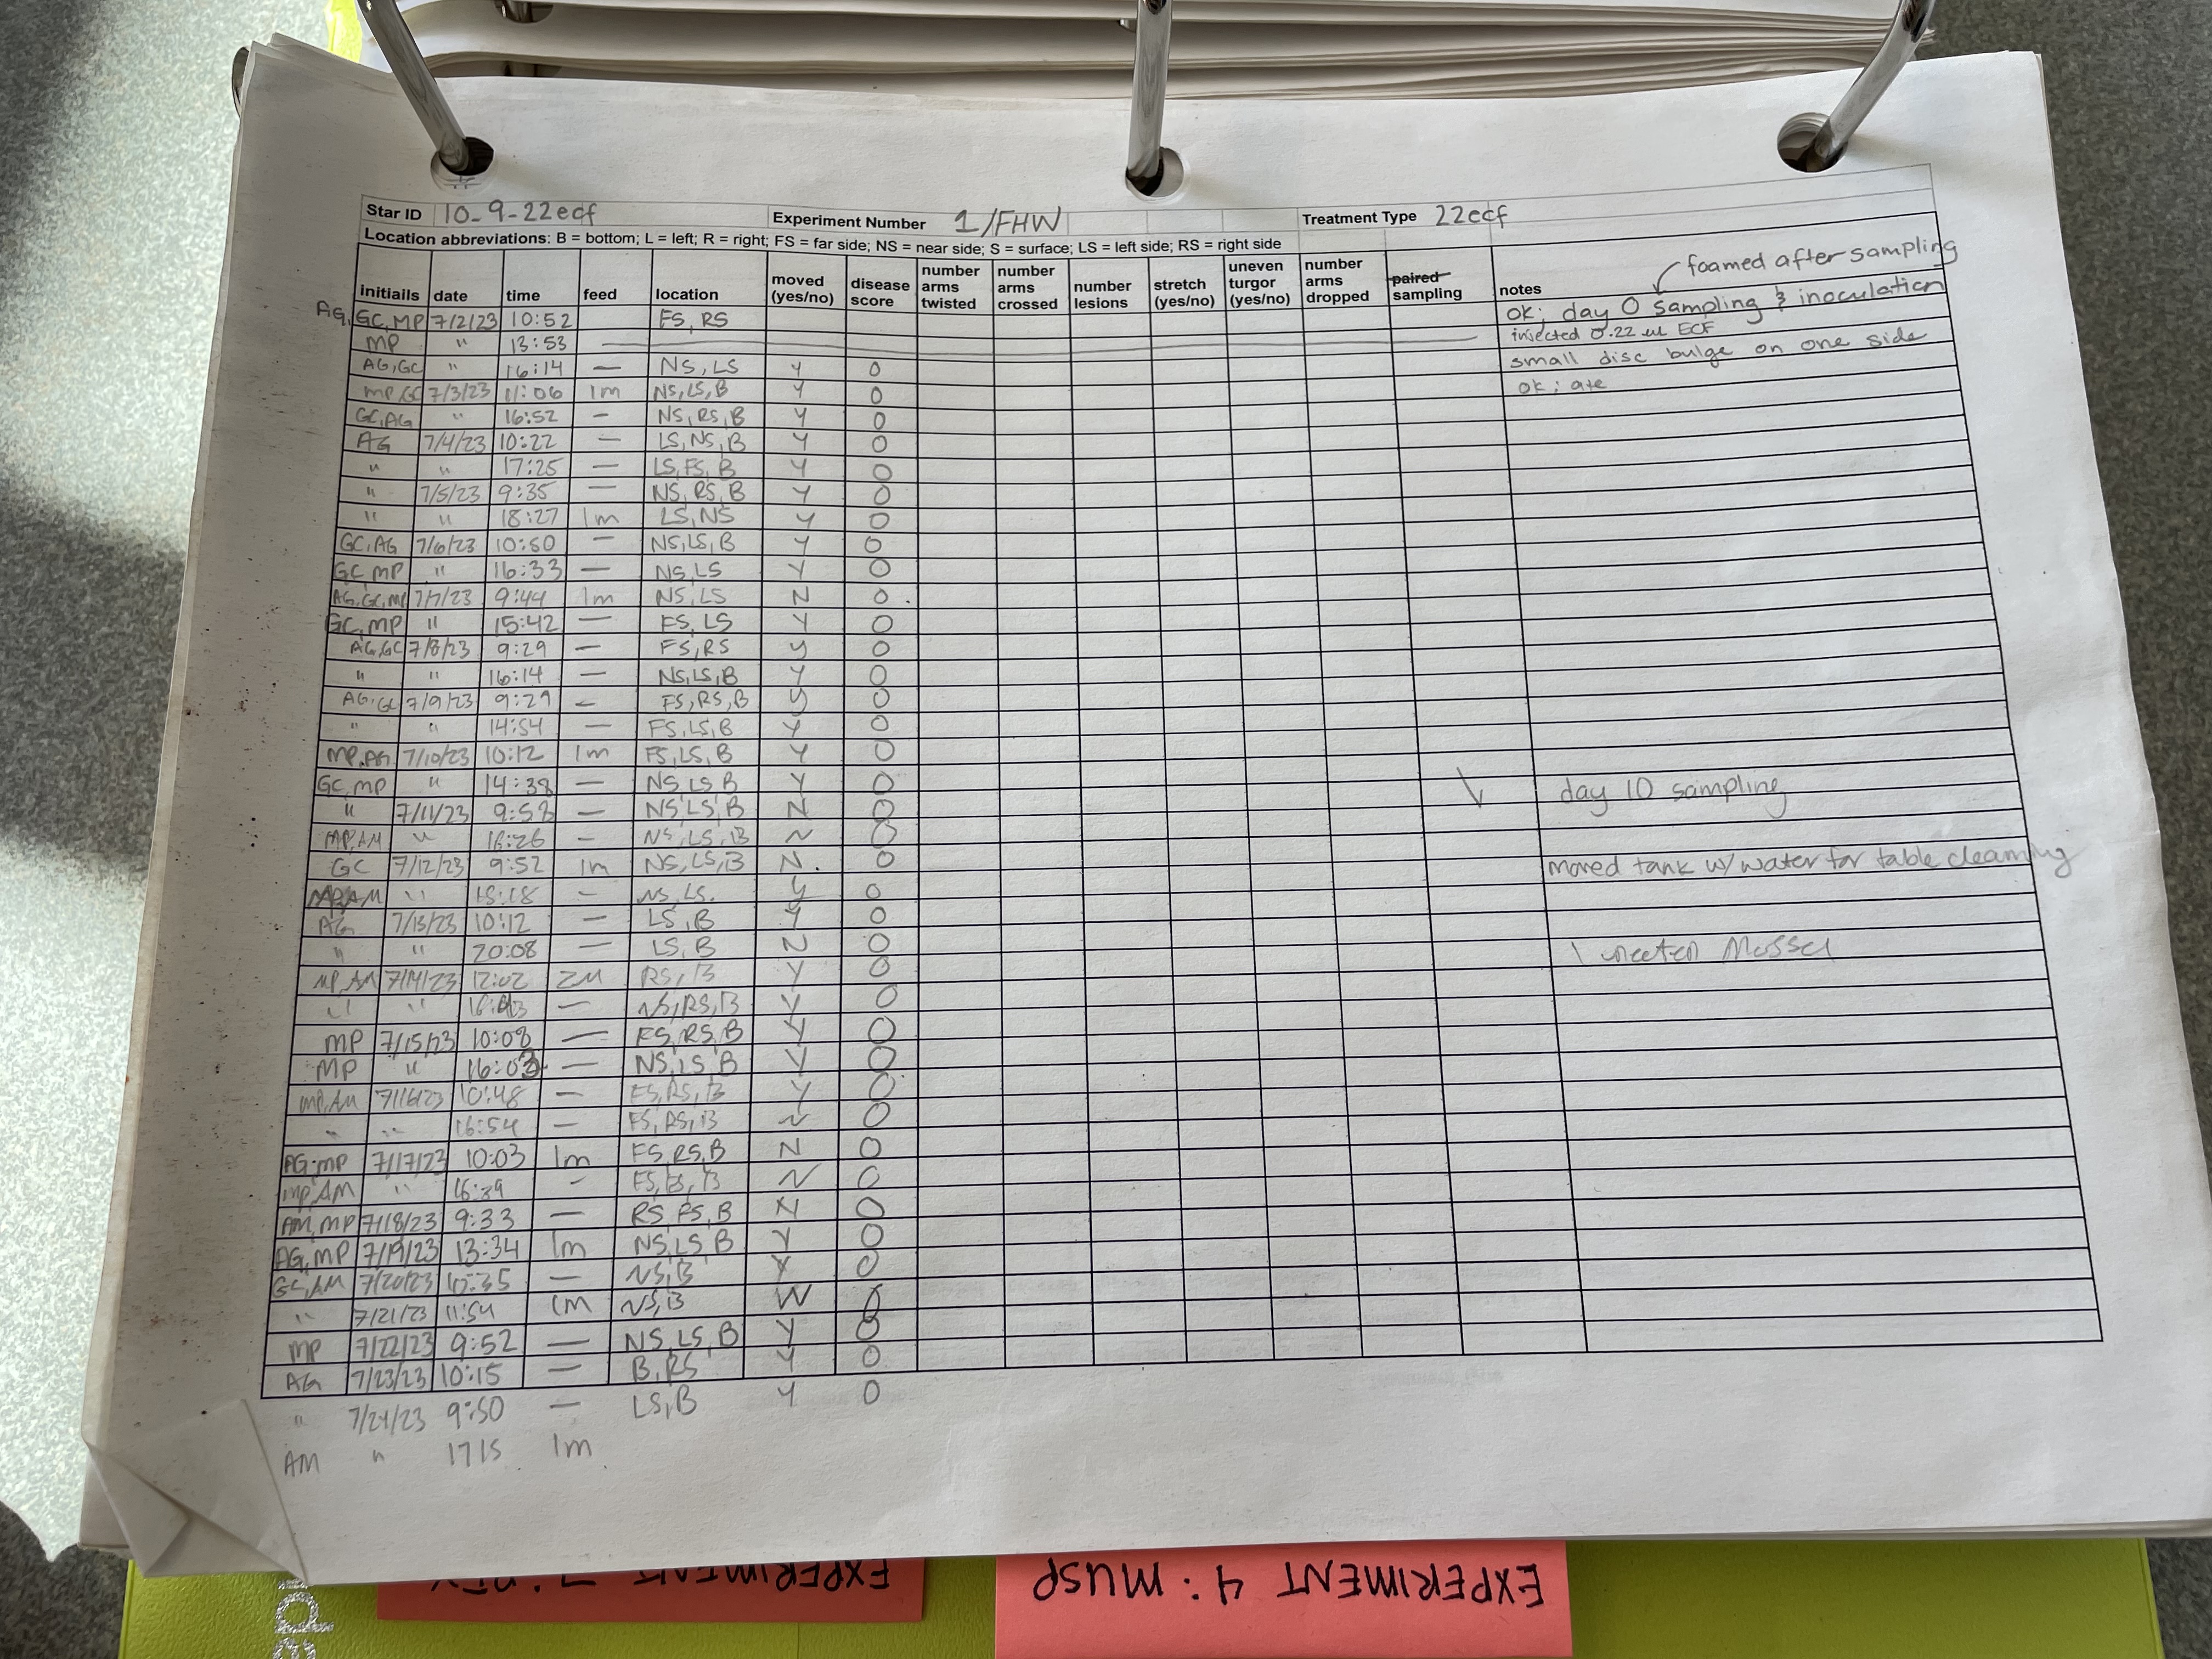 Star ID 10-9-22ecf Experiment Number 1/FHW Treatment Type 22ecf
Location abbreviations: B = bottom; L = left; R = right; FS = far side; NS = near side; S = surface; LS = left side; RS = right side
foamed after sampling
initiails date time feed location moved (yes/no) disease score number arms twisted number arms crossed number lesions stretch (yes/no) uneven turgor (yes/no) number arms dropped paired sampling notes
AG, GC, MP 7/2/23 10:52 FS, RS ok; day 0 sampling & inoculation
MP " 13:53 injected 0.22 ECF
AG, GC " 16:14 — NS, LS Y 0 small disc bulge on one side
MP, GC 7/3/23 11:06 1m NS, LS, B Y 0 ok; ate
GC, AG " 16:52 — NS, RS, B Y 0
AG 7/4/23 10:22 — LS, NS, B Y 0
" " 17:25 — LS, FS, B Y 0
" 7/5/23 9:35 — NS, RS, B Y 0
" " 18:27 1m LS, NS Y 0
GC, AG 7/6/23 10:50 — NS, LS, B Y 0
GC, MP " 16:33 — NS, LS Y 0
AG, GC, MP 7/7/23 9:44 1m NS, LS N 0
GC, MP " 15:42 — FS, LS Y 0
AG, GC 7/8/23 9:29 — FS, RS Y 0
" " 16:14 — NS, LS, B Y 0
AG, GC 7/9/23 9:29 — FS, RS, B Y 0
" " 14:54 — FS, LS, B Y 0
MP, AG 7/10/23 10:12 1m FS, LS, B Y 0
GC, MP " 14:38 — NS, LS, B Y 0 \ day 10 sampling
" 7/11/23 9:58 — NS, LS, B N 0
MP, AM " 16:26 — NS, LS, B N 0
GC 7/12/23 9:52 1m NS, LS, B N. 0 moved tank w/water for table cleaning
MP, AM " — NS, LS. Y 0
AG 7/13/23 10:12 — LS, B Y 0
" " 20:08 — LS, B N 0 1 uneaten Mussel
MP, AM 7/14/23 12:02 2M RS, B Y 0
" " — NS, RS, B Y 0
MP 7/15/23 10:08 — FS, RS, B Y 0
MP " 16:03 — NS, LS, B Y 0
MP, AM 7/16/23 10:48 — FS, RS, B Y 0
" " 16:54 — FS, RS, B N 0
AG, MP 7/17/23 10:03 1m FS, RS, B N 0
MP, AM " 16:39 — FS, B N 0
AM, MP 7/18/23 9:33 — RS, FS, B N 0
AG, MP 7/19/23 13:34 1m NS, LS, B Y 0
GC, AM 7/20/23 — NS, B Y 0
" 7/21/23 11:54 1M NS, B N 0
MP 7/22/23 9:52 — NS, LS, B Y 0
AG 7/23/23 10:15 — B, RS Y 0
" 7/24/23 9:50 — LS, B Y 0
AM " 1715 1m
EXPERIMENT 4: MUSP
EXPERIMENT